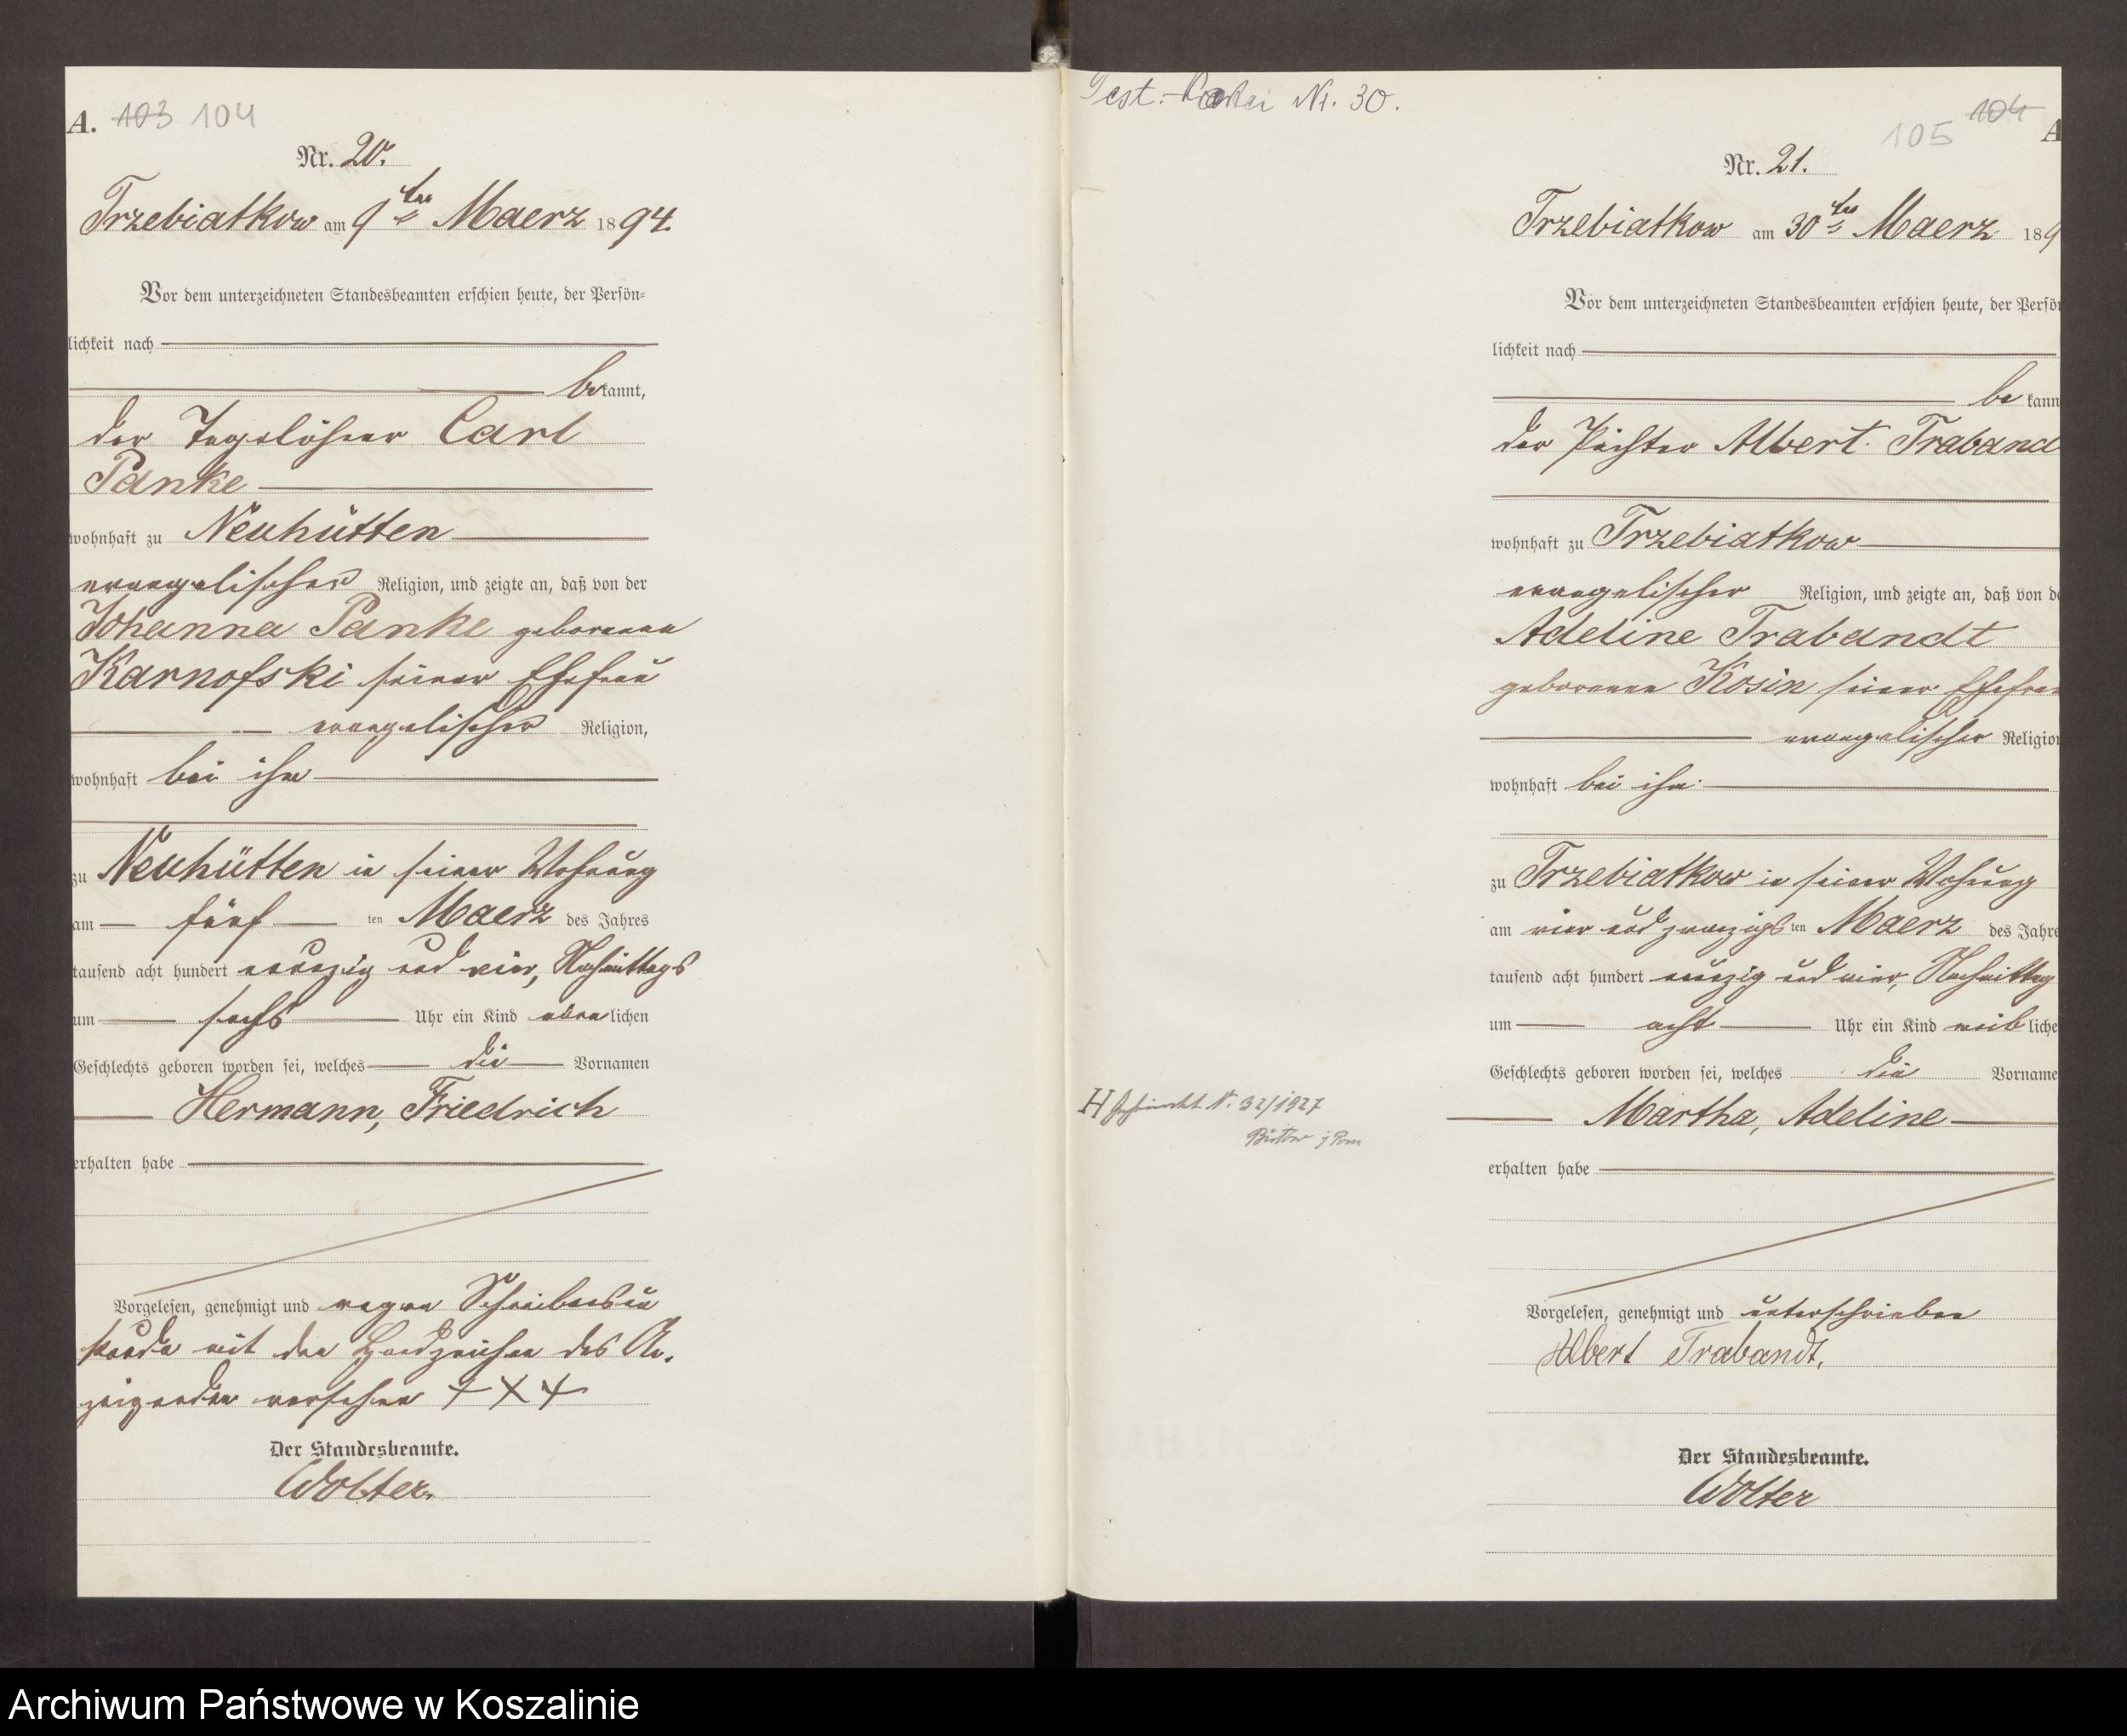 A. 103 104
Nr. 20.
Trzebiatkow am 9ten Maerz 1894.
Vor dem unterzeichneten Standesbeamten erschien heute, der Persön=
lichkeit nach
bekannt,
der Tagelöhner Carl
Panke
wohnhaft zu Neuhütten
evangelischer Religion, und zeigte an, daß von der
Johanna Panke geborenen
Karnofski seiner Ehefrau
evangelischer Religion,
wohnhaft bei ihm
zu Neuhütten in seiner Wohnung
am fünf ten Maerz des Jahres
tausend acht hundert neunzig und vier, Nachmittags
um sechs Uhr ein Kind männlichen
Geschlechts geboren worden sei, welches die Vornamen
Hermann, Friedrich
erhalten habe
Vorgelesen, genehmigt und wegen Schreibensun
kunde mit den Handzeichen des An-
zeigenden versehen + + +
Der Standesbeamte.
Wolter.
Test.- Nr. 30.
105 104
A
Nr. 21.
Trzebiatkow am 30ten Maerz 189
Vor dem unterzeichneten Standesbeamten erschien heute, der Persön
lichkeit nach
bekann
der Pächter Albert Traband
wohnhaft zu Trzebiatkow
evangelischer Religion, und zeigte an, daß von de
Adeline Trabandt
geborenen Kosin seiner Ehefrau
evangelischer Religion
wohnhaft bei ihm
zu Trzebiatkow in seiner Wohnung
am vier und zwanzigsten Maerz des Jahre
tausend acht hundert neunzig und vier, Nachmittag
um acht Uhr ein Kind weibliche
Geschlechts geboren worden sei, welches die Vorname
Martha, Adeline
H Nr. 32/1927
Bütow i Pom
erhalten habe
Vorgelesen, genehmigt und unterschrieben
Albert Trabandt,
Der Standesbeamte.
Wolter
Archiwum Państwowe w Koszalinie